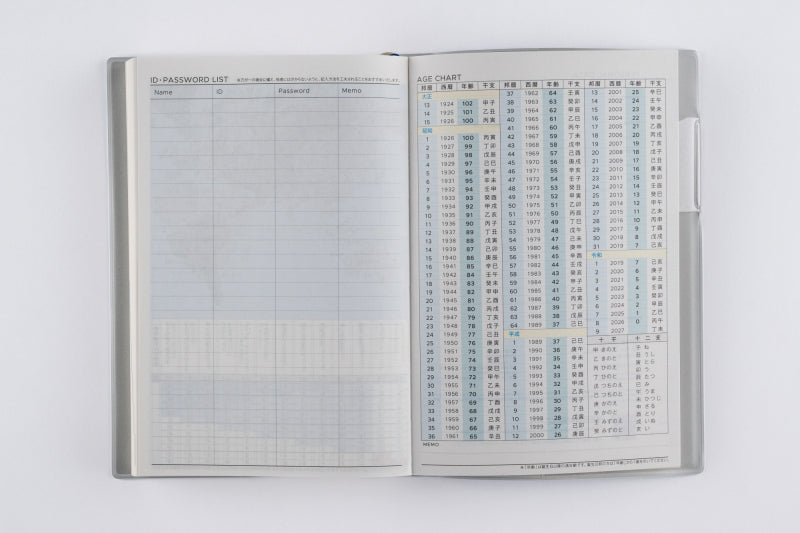 ID・PASSWORD LIST ※万が一の場合に備え、他者には分からないように、記入方法を工夫されることをおすすめいたします。
Name ID Password Memo
AGE CHART
邦暦 西暦 年齢 干支
大正
13 1924 102 甲子
14 1925 101 乙丑
15 1926 100 丙寅
昭和
1 1926 100 丙寅
2 1927 99 丁卯
3 1928 98 戊辰
4 1929 97 己巳
5 1930 96 庚午
6 1931 95 辛未
7 1932 94 壬申
8 1933 93 癸酉
9 1934 92 甲戌
10 1935 91 乙亥
11 1936 90 丙子
12 1937 89 丁丑
13 1938 88 戊寅
14 1939 87 己卯
15 1940 86 庚辰
16 1941 85 辛巳
17 1942 84 壬午
18 1943 83 癸未
19 1944 82 甲申
20 1945 81 乙酉
21 1946 80 丙戌
22 1947 79 丁亥
23 1948 78 戊子
24 1949 77 己丑
25 1950 76 庚寅
26 1951 75 辛卯
27 1952 74 壬辰
28 1953 73 癸巳
29 1954 72 甲午
30 1955 71 乙未
31 1956 70 丙申
32 1957 69 丁酉
33 1958 68 戊戌
34 1959 67 己亥
35 1960 66 庚子
36 1961 65 辛丑
邦暦 西暦 年齢 干支
37 1962 64 壬寅
38 1963 63 癸卯
39 1964 62 甲辰
40 1965 61 乙巳
41 1966 60 丙午
42 1967 59 丁未
43 1968 58 戊申
44 1969 57 己酉
45 1970 56 庚戌
46 1971 55 辛亥
47 1972 54 壬子
48 1973 53 癸丑
49 1974 52 甲寅
50 1975 51 乙卯
51 1976 50 丙辰
52 1977 49 丁巳
53 1978 48 戊午
54 1979 47 己未
55 1980 46 庚申
56 1981 45 辛酉
57 1982 44 壬戌
58 1983 43 癸亥
59 1984 42 甲子
60 1985 41 乙丑
61 1986 40 丙寅
62 1987 39 丁卯
63 1988 38 戊辰
64 1989 37 己巳
平成
1 1989 37 己巳
2 1990 36 庚午
3 1991 35 辛未
4 1992 34 壬申
5 1993 33 癸酉
6 1994 32 甲戌
7 1995 31 乙亥
8 1996 30 丙子
9 1997 29 丁丑
10 1998 28 戊寅
11 1999 27 己卯
12 2000 26 庚辰
邦暦 西暦 年齢 干支
13 2001 25 辛巳
14 2002 24 壬午
15 2003 23 癸未
16 2004 22 甲申
17 2005 21 乙酉
18 2006 20 丙戌
19 2007 19 丁亥
20 2008 18 戊子
21 2009 17 己丑
22 2010 16 庚寅
23 2011 15 辛卯
24 2012 14 壬辰
25 2013 13 癸巳
26 2014 12 甲午
27 2015 11 乙未
28 2016 10 丙申
29 2017 9 丁酉
30 2018 8 戊戌
31 2019 7 己亥
令和
1 2019 7 己亥
2 2020 6 庚子
3 2021 5 辛丑
4 2022 4 壬寅
5 2023 3 癸卯
6 2024 2 甲辰
7 2025 1 乙巳
8 2026 0 丙午
9 2027 丁未
十干
甲 きのえ
乙 きのと
丙 ひのえ
丁 ひのと
戊 つちのえ
己 つちのと
庚 かのえ
辛 かのと
壬 みずのえ
癸 みずのと
十二支
子 ね
丑 うし
寅 とら
卯 う
辰 たつ
巳 み
午 うま
未 ひつじ
申 さる
酉 とり
戌 いぬ
亥 い
MEMO